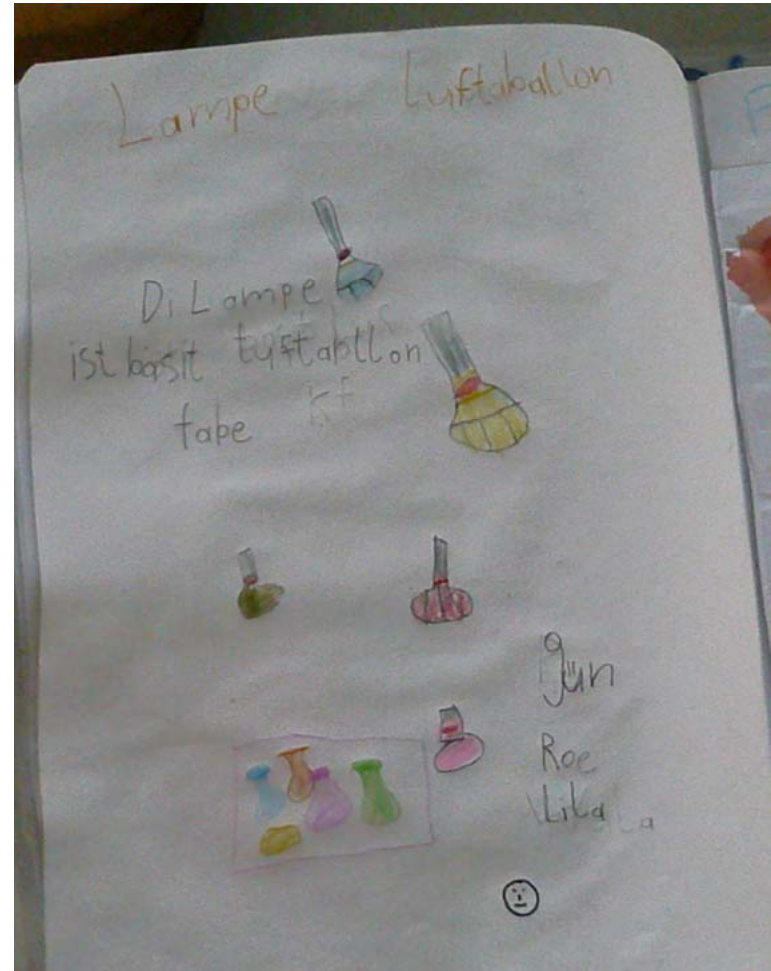 Lampe Luftaballon
Di Lampe
ist basit Luftabllon
fabe
gün
Roe
Lila